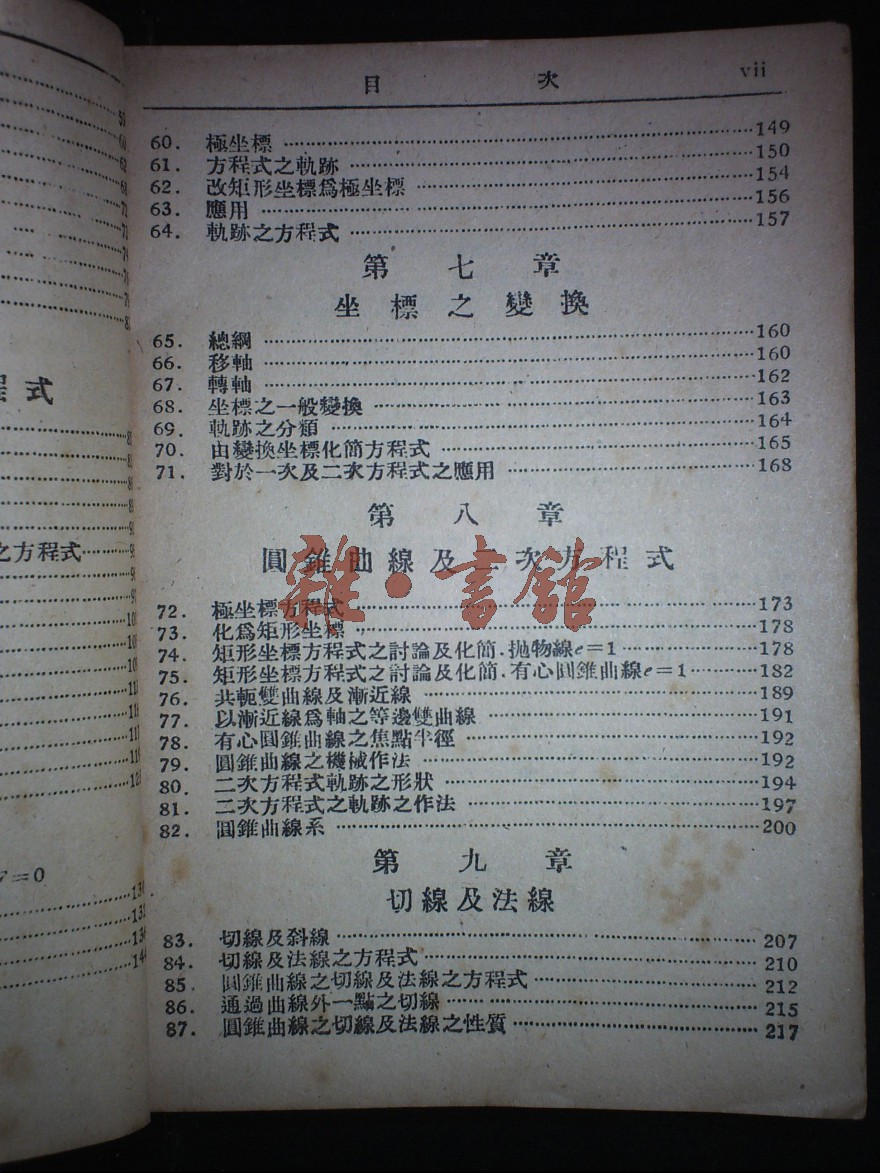 目 次 vii
60. 極坐標 149
61. 方程式之軌跡 150
62. 改矩形坐標爲極坐標 154
63. 應用 156
64. 軌跡之方程式 157
第七章
坐標之變換
65. 總綱 160
66. 移軸 160
67. 轉軸 162
68. 坐標之一般變換 163
69. 軌跡之分類 164
70. 由變換坐標化簡方程式 165
71. 對於一次及二次方程式之應用 168
第八章
圓錐曲線及二次方程式
雜·書館
72. 極坐標方程式 173
73. 化爲矩形坐標 178
74. 矩形坐標方程式之討論及化簡.拋物線e=1 178
75. 矩形坐標方程式之討論及化簡.有心圓錐曲線e=1 182
76. 共軛雙曲線及漸近線 189
77. 以漸近線爲軸之等邊雙曲線 191
78. 有心圓錐曲線之焦點半徑 192
79. 圓錐曲線之機械作法 192
80. 二次方程式軌跡之形狀 194
81. 二次方程式之軌跡之作法 197
82. 圓錐曲線系 200
第九章
切線及法線
83. 切線及斜線 207
84. 切線及法線之方程式 210
85. 圓錐曲線之切線及法線之方程式 212
86. 通過曲線外一點之切線 215
87. 圓錐曲線之切線及法線之性質 217
程式
之方程式
=0